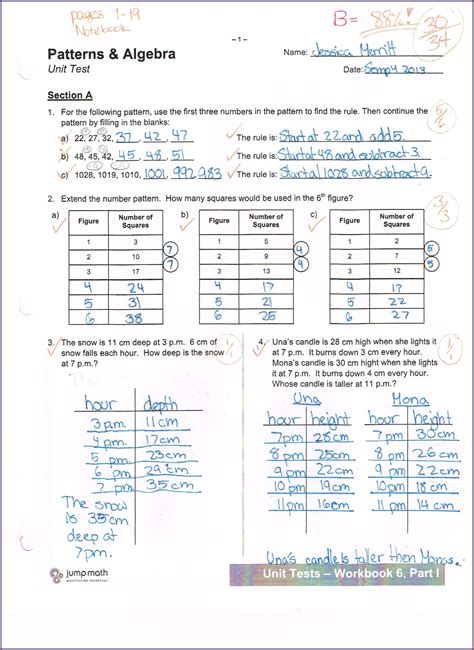 pages 1-19
Notebook
B= 88%! 30/34
- 1 -
Patterns & Algebra
Name: Jessica Merritt
Unit Test
Date: 2013
Section A
1. For the following pattern, use the first three numbers in the pattern to find the rule. Then continue the
pattern by filling in the blanks:
5/6
a) 22, 27, 32, 37, 42, 47 The rule is: Start at 22 and add 5.
b) 48, 45, 42, 45, 48, 51 The rule is: Start at 48 and subtract 3.
c) 1028, 1019, 1010, 1001, 992, 983 The rule is: Start at 1028 and subtract 9.
2. Extend the number pattern. How many squares would be used in the 6th figure?
3/3
a) b) c)
Figure Number of Squares Figure Number of Squares Figure Number of Squares
1 3 1 5 1 2
7 4 5
2 10 2 9 2 7
7 4 5
3 17 3 13 3 12
4 24 4 17 4 17
5 31 5 21 5 22
6 38 6 25 6 27
3. The snow is 11 cm deep at 3 p.m. 6 cm of
snow falls each hour. How deep is the snow
at 7 p.m.?
1/1
hour depth
3pm 11cm
4pm 17cm
5pm 23cm
6 pm 29cm
7 pm 35cm
The snow
is 35cm
deep at
7pm.
4. Una's candle is 28 cm high when she lights it
at 7 p.m. It burns down 3 cm every hour.
Mona's candle is 30 cm high when she lights
it at 7 p.m. It burns down 4 cm every hour.
Whose candle is taller at 11 p.m.?
1/1
Una Mona
hour height hour height
7pm 28cm 7pm 30cm
8pm 25cm 8pm
9pm 22cm 9pm 22cm
10pm 19cm 10pm 18cm
11pm 16cm 11pm 14cm
Una's candle is taller then Monas.
jumpmath
Unit Tests – Workbook 6, Part I